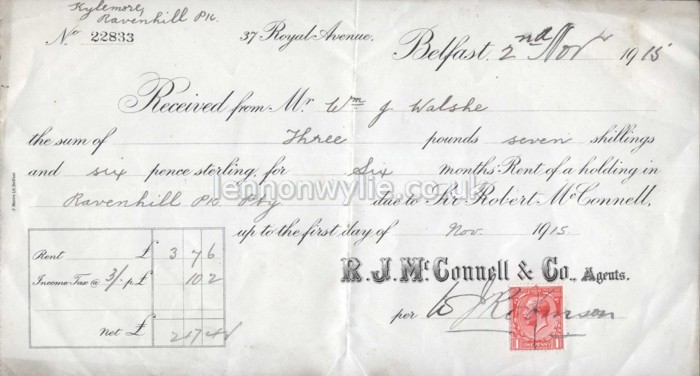 Kylemore,
Ravenhill Pk.
No 22833
37 Royal Avenue,
Belfast, 2nd Novr 1915
Received from Mr Wm J Walshe
the sum of Three pounds seven shillings
and six pence sterling, for Six months' Rent of a holding in
Ravenhill Pk Pty due to Sir Robert McConnell,
up to the first day of Nov. 1915
lennonwylie.co.uk
Rent £ 3 7 6
Income Tax @ 3/- p. £ 10 2
Net £ 2 17 4
R. J. McConnell & Co., Agents.
per W J Robinson